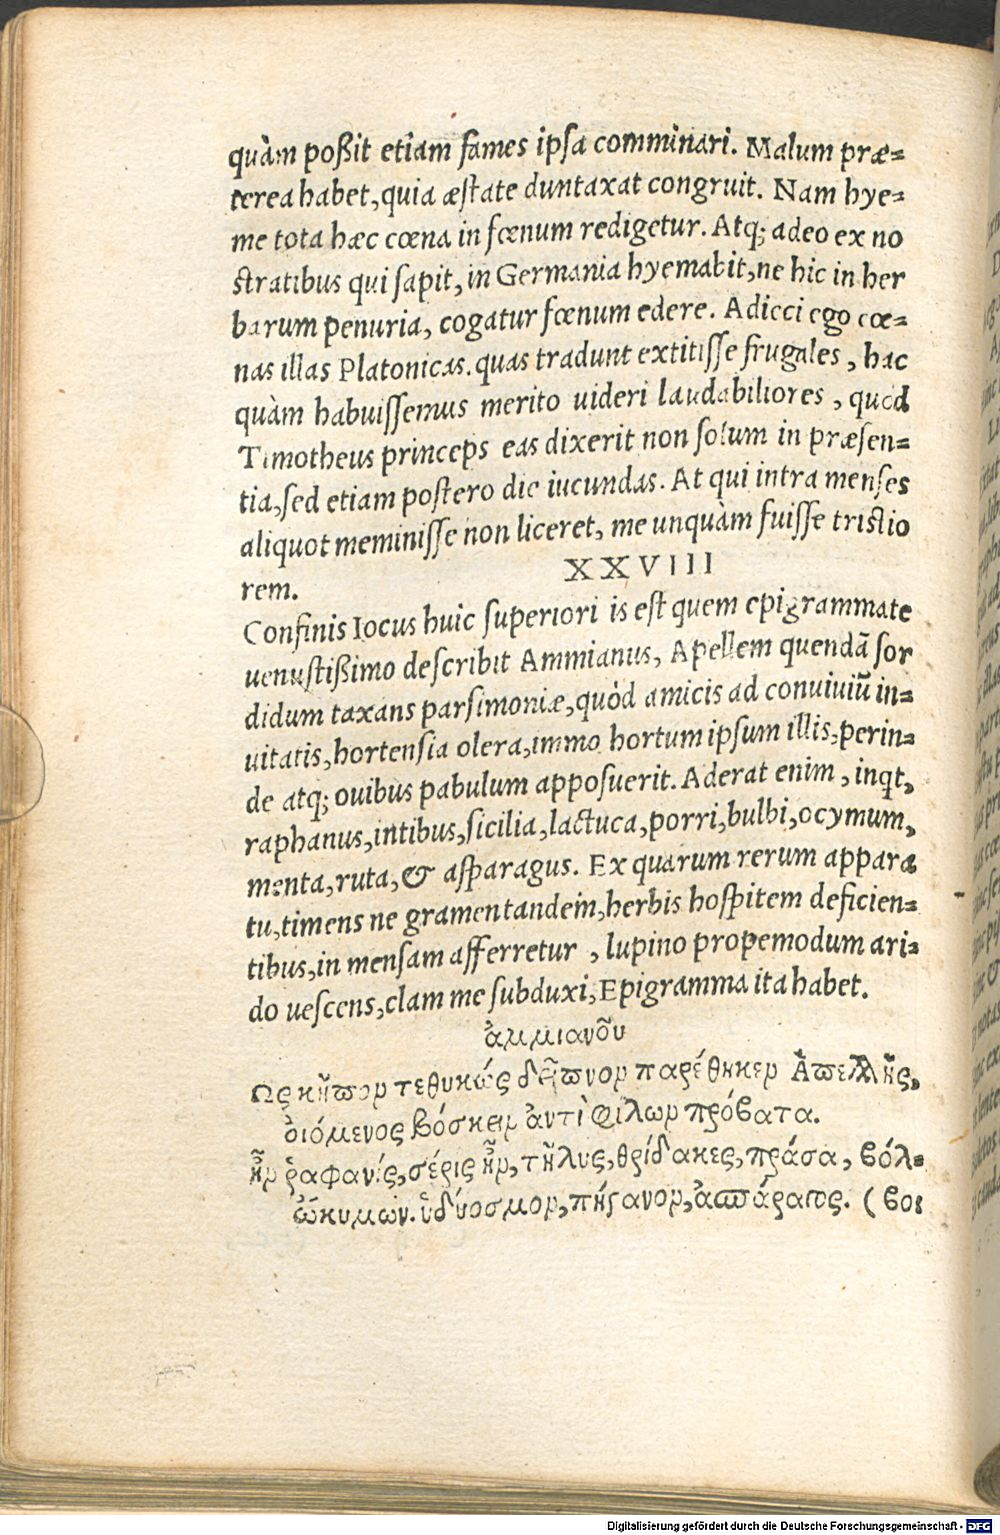 quàm poßit etiam fames ipsa comminari. Malum præ-
terea habet, quia æstate duntaxat congruit. Nam hye-
me tota hæc cœna in fœnum redigetur. Atq; adeo ex no
stratibus qui sapit, in Germania hyemabit, ne hic in her
barum penuria, cogatur fœnum edere. Adieci ego cœ-
nas illas Platonicas. quas tradunt extitisse frugales, hac
quàm habuissemus merito uideri laudabiliores, quòd
Timotheus princeps eas dixerit non solum in præsen-
tia, sed etiam postero die iucundas. At qui intra menses
aliquot meminisse non liceret, me unquàm fuisse tristio
rem.
XXVIII
Confinis Iocus huic superiori is est quem epigrammate
uenustißimo describit Ammianus, Apellem quendã sor
didum taxans parsimoniæ, quòd amicis ad conuiuiũ in-
uitatis, hortensia olera, immo hortum ipsum illis, perin-
de atq; ouibus pabulum apposuerit. Aderat enim, inqt,
raphanus, intibus, sicilia, lactuca, porri, bulbi, ocymum,
menta, ruta, & asparagus. Ex quarum rerum appara
tu, timens ne gramen tandem, herbis hospitem deficien-
tibus, in mensam afferretur, lupino propemodum ari-
do uescens, clam me subduxi, Epigramma ita habet.
ἀμμιανοῦ
Ως κῆπον τεθυκώς δεῖπνον παρέθηκεν Ἀπελλῆς,
ὀιόμενος βόσκειν ἀντὶ φίλων πρόβατα.
ἦν ῥαφανίς, σέρις ἦν, τῆλυς, θρίδακες, πράσα, βόλ-
ὤκυμων. ἡδύοσμον, πήγανον, ἀσπάραγος. (βοι
Digitalisierung gefördert durch die Deutsche Forschungsgemeinschaft - DFG